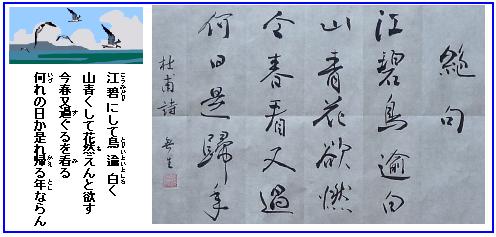 絶句
江碧鳥逾白
山青花欲燃
今春看又過
何日是歸年
杜甫詩
江碧にして鳥逾白く
山青くして花然えんと欲す
今春又過ぐるを看る
何れの日か是れ帰る年ならん